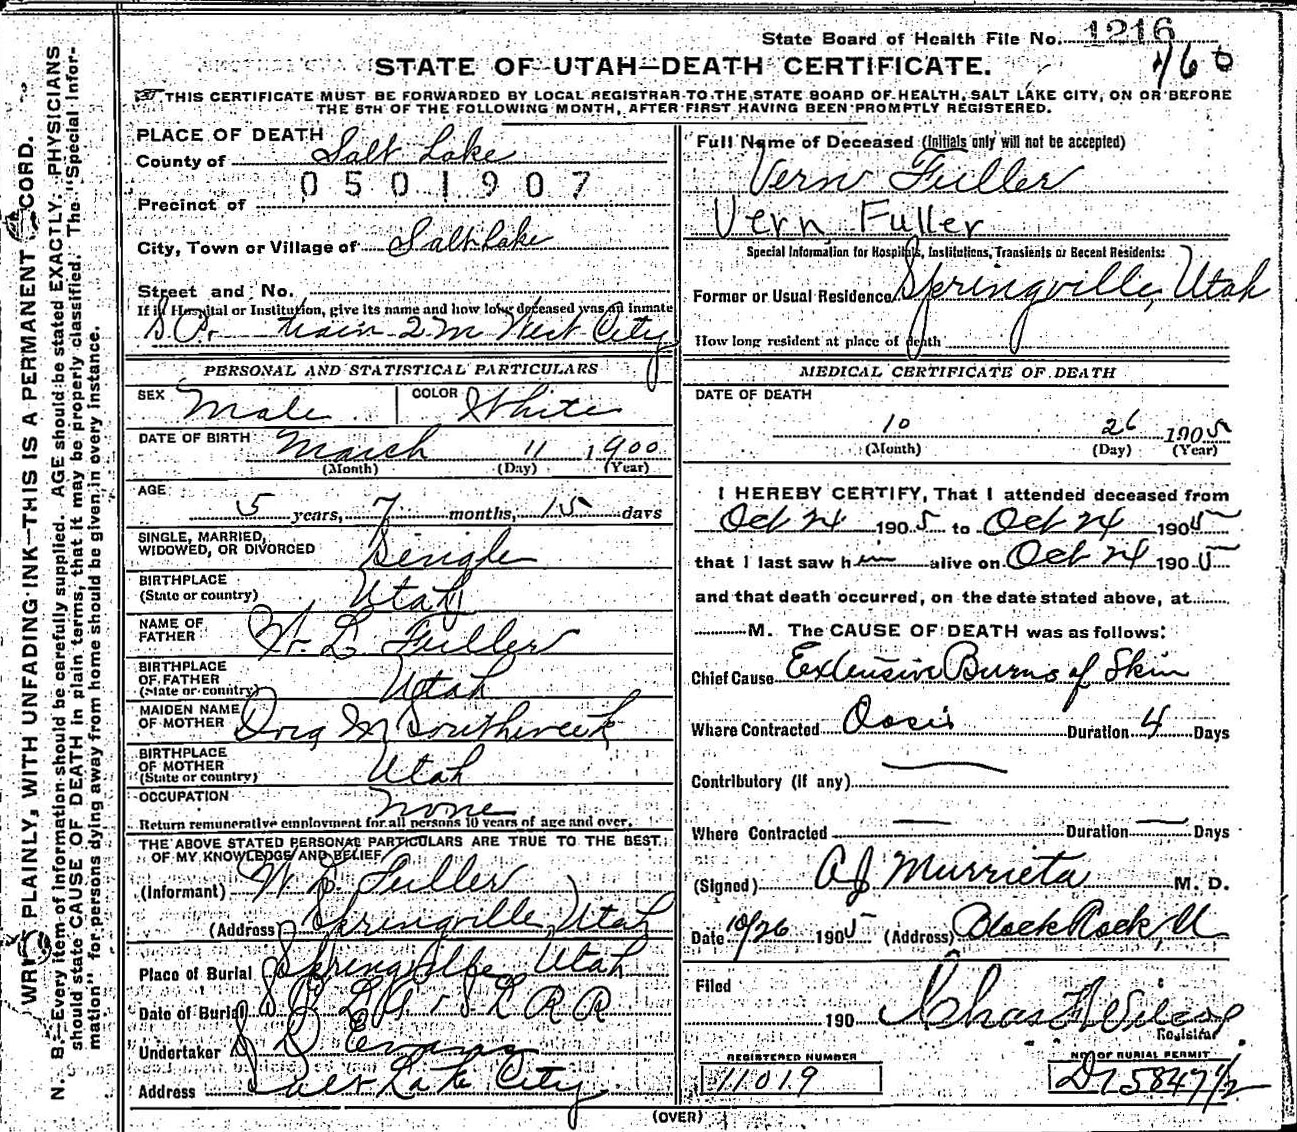 State Board of Health File No. 1216
1/60
STATE OF UTAH—DEATH CERTIFICATE.
THIS CERTIFICATE MUST BE FORWARDED BY LOCAL REGISTRAR TO THE STATE BOARD OF HEALTH, SALT LAKE CITY, ON OR BEFORE
THE 5TH OF THE FOLLOWING MONTH, AFTER FIRST HAVING BEEN PROMPTLY REGISTERED.
PLACE OF DEATH
County of Salt Lake
0501907
Precinct of
City, Town or Village of Salt Lake
Street and No.
If in Hospital or Institution, give its name and how long deceased was an inmate
train 2 m West City
PERSONAL AND STATISTICAL PARTICULARS
SEX Male COLOR White
DATE OF BIRTH March 11 1900
(Month) (Day) (Year)
AGE
5 years, 7 months, 15 days
SINGLE, MARRIED,
WIDOWED, OR DIVORCED Single
BIRTHPLACE
(State or country) Utah
NAME OF
FATHER W. L. Fuller
BIRTHPLACE
OF FATHER
(State or country) Utah
MAIDEN NAME
OF MOTHER Dora M
BIRTHPLACE
OF MOTHER
(State or country) Utah
OCCUPATION None
Return remunerative employment for all persons 10 years of age and over.
THE ABOVE STATED PERSONAL PARTICULARS ARE TRUE TO THE BEST
OF MY KNOWLEDGE AND BELIEF
(Informant) W. L. Fuller
(Address) Springville, Utah
Place of Burial Springville Utah
Date of Burial
Undertaker S D Evans
Address Salt Lake City
Full Name of Deceased (Initials only will not be accepted)
Vern Fuller
Vern Fuller
Special Information for Hospitals, Institutions, Transients or Recent Residents:
Former or Usual Residence Springville, Utah
How long resident at place of death
MEDICAL CERTIFICATE OF DEATH
DATE OF DEATH
10 26 1905
(Month) (Day) (Year)
I HEREBY CERTIFY, That I attended deceased from
Oct 24 1905 to Oct 24 1905
that I last saw him alive on Oct 24 1905
and that death occurred, on the date stated above, at
M. The CAUSE OF DEATH was as follows:
Chief Cause Extensive Burns of Skin
Where Contracted Oasis Duration 4 Days
Contributory (if any)
Where Contracted Duration Days
(Signed) A J Murrieta M. D.
Date 10/26 1905 (Address) Black Rock, U
Filed
190 Chas
Registrar
REGISTERED NUMBER
11019
NO. OF BURIAL PERMIT
D 15847 1/2
(OVER)
WRITE PLAINLY, WITH UNFADING INK—THIS IS A PERMANENT RECORD.
N. B.—Every item of information should be carefully supplied. AGE should be stated EXACTLY. PHYSICIANS
should state CAUSE OF DEATH in plain terms, that it may be properly classified. The "Special Infor-
mation" for persons dying away from home should be given in every instance.